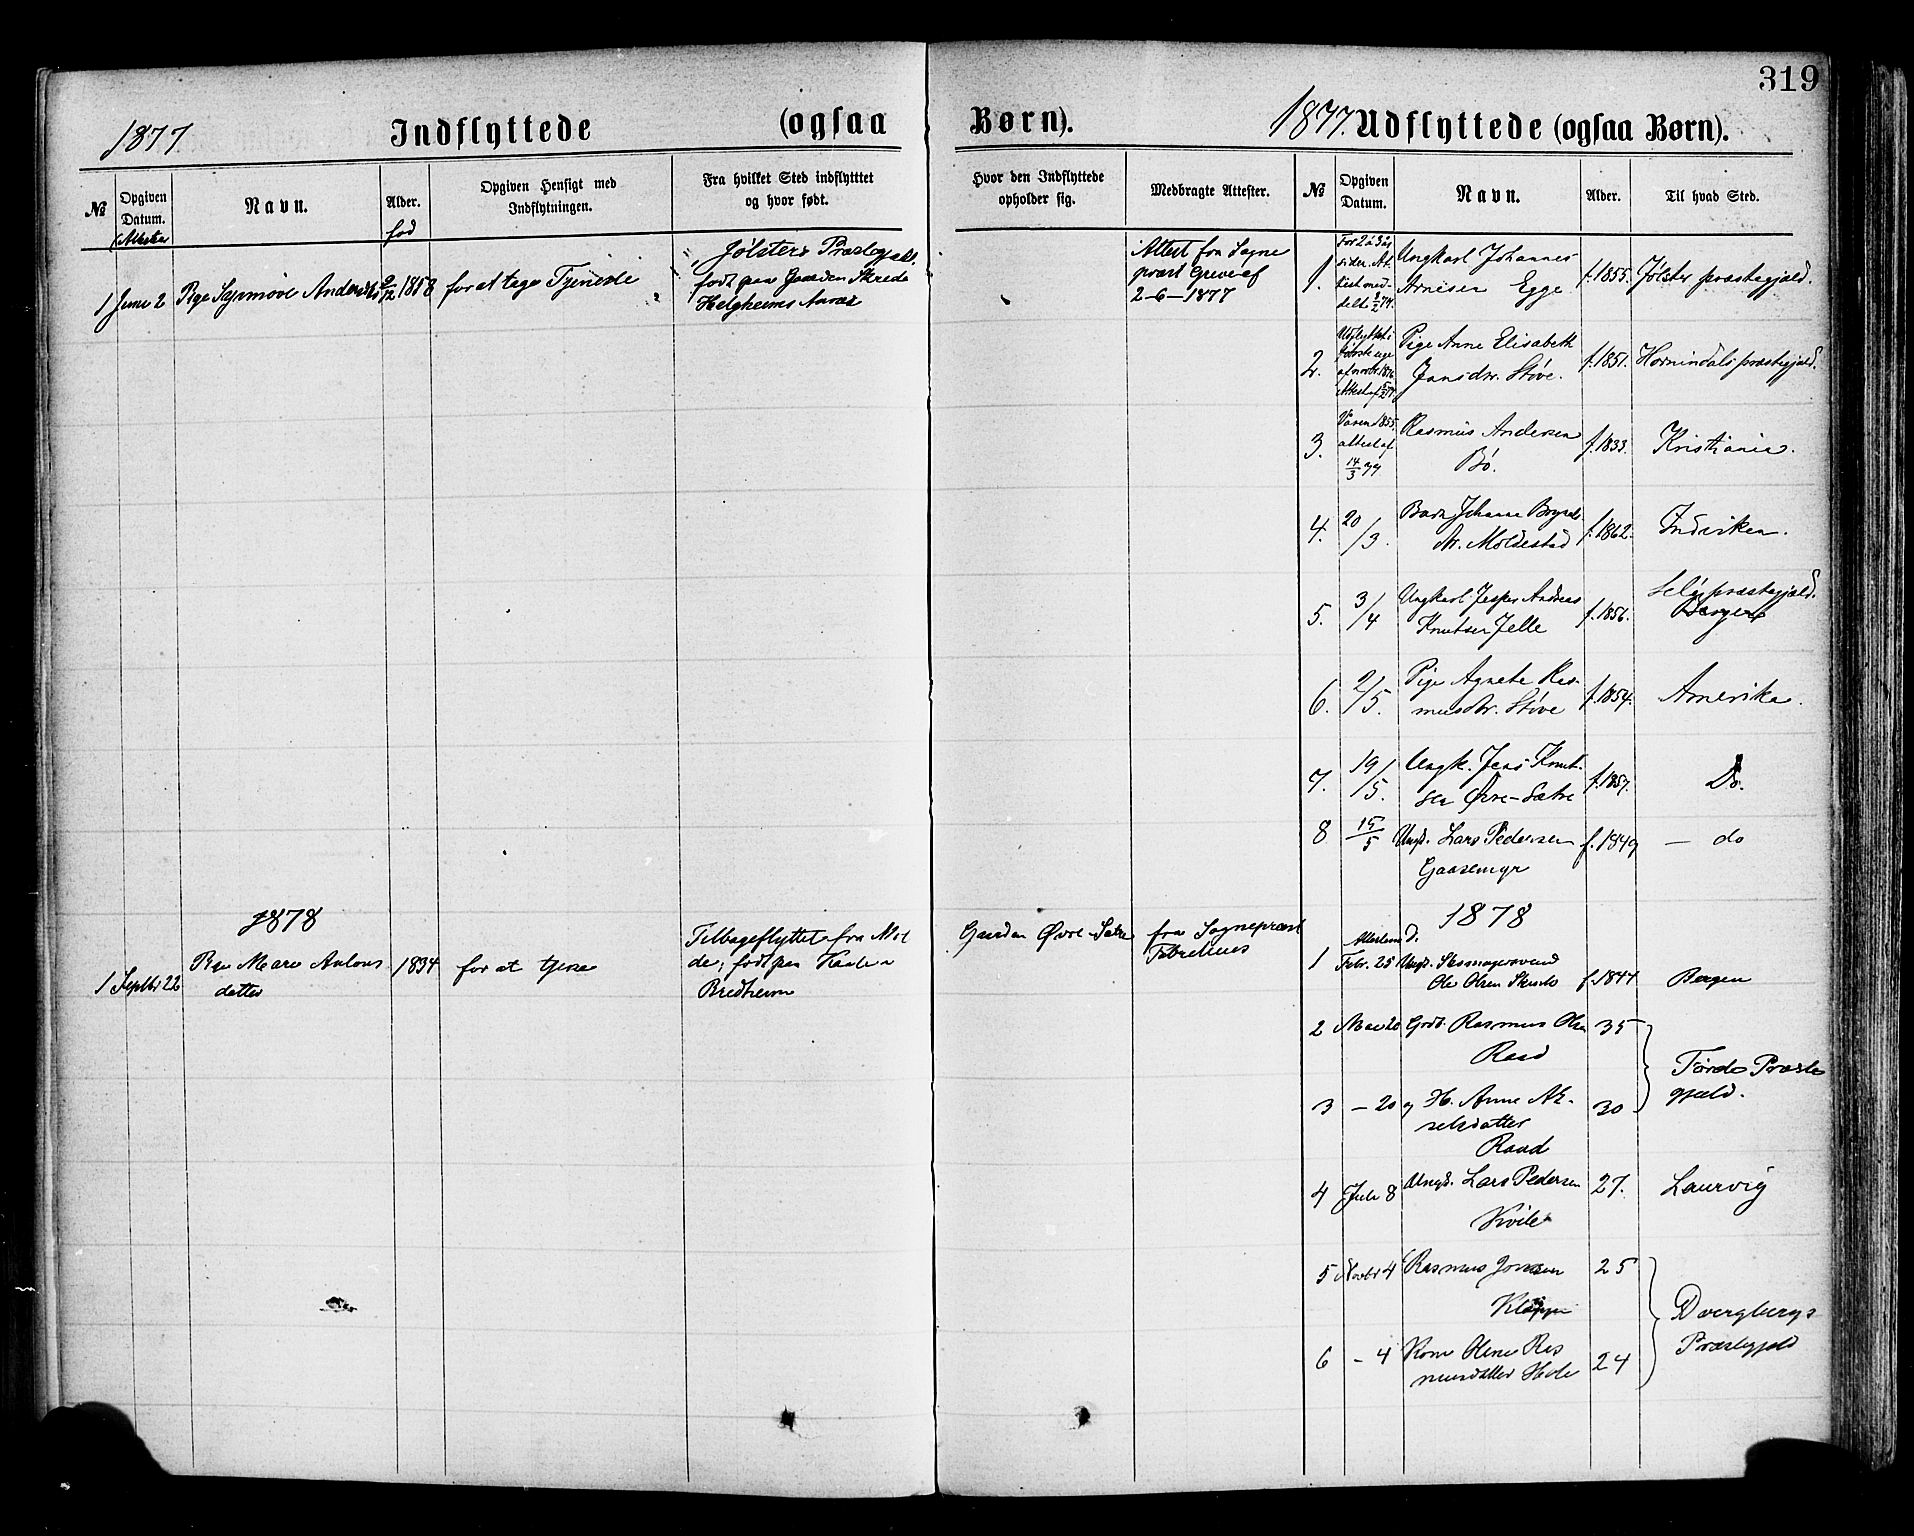 319
1877 Indflyttede (ogsaa Børn).
№
Opgiven Datum.
Attesten
Navn.
Alder.
fød
Opgiven Hensigt med Indflytningen.
Fra hvilket Sted indflytttet og hvor født.
Hvor den Indflyttede opholder sig.
Medbragte Attester.
1 Juni 2 Pige Synnøve Andersdtr 1858 for at tage Tjeneste
Jølsters Præstegjeld.
født paa Gaarden Skrede
Helgheims Annex
Attest fra Sogne
præst Greve af
2-6-1877
1878
1 Septbr 22 Pige Mari Antons
datter
1834 for at tjene
Tilbageflyttet fra Mol
de; født paa
Bredheim
Gaarden Øvre-Sætre
fra Sognepræst
1877. Udflyttede (ogsaa Børn).
№
Opgiven Datum.
Navn.
Alder.
Til hvad Sted.
1. For 2 à 3 år
siden. At-
test med-
delt 2/2 77.
Ungkarl Johannes
Arnesen Egge
f. 1855. Jølster præstegjæld.
2. Udflyttet i
første uge
af novbr. 1876
Attest af
Pige Anne Elisabeth
Jonsdtr. Støve.
f. 1851. Hornindals præstegjæld.
3. Våren 1855.
attest af
14/3 77
Rasmus Andersen
Bö.
f. 1833. Kristiania.
4. 20/3. Barn Johanne
dtr. Moldestad
f. 1862. Indviken.
5. 3/4 Ungkarl Jesper Andreas
Knutsen Jelle
f. 1856. Selje præstegjæld.
Bergen
6. 2/5. Pige Agnete Ras-
musdtr. Støve
f. 1854. Amerika.
7. 19/5. Ungk. Jens Knut-
sen Øvre-Sætre
f. 1857. Do.
8 15/5 Ungk. Lars Pedersen
Gaasemyr
f. 1849 — do
1878
Attesten d.
1 Febr. 25 Ungk. Skomagersvend
Ole Olsen
f. 1844 Bergen
2 Mai 20 Grdb. Rasmus Olsen 35
Raad
3 — 20 og H. Anne Ak-
selsdatter
Raad
30
Førde Præste
gjæld.
4 Juli 8 Ungk. Lars Pedersen 27. Laurvig
Kvile
5 Novbr 4 Rasmus Jonsen 25
6 - 4 Kone Oline Ras
musdatter Hole 24
Dvergbergs
Præstegjeld